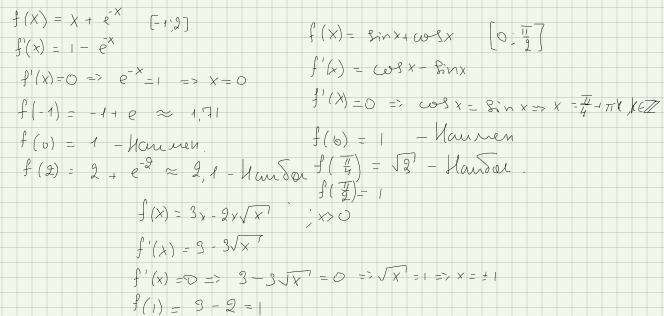 f(x) = x + e^{-x} [-1;2]
f'(x) = 1 - e^{-x}
f'(x)=0 => e^{-x}=1 => x=0
f(-1) = -1+e ≈ 1,71
f(0) = 1 - Наимен.
f(2) = 2 + e^{-2} ≈ 2,1 - Наибол
f(x) = sinx+cosx [0; π/2]
f'(x) = cosx - sinx
f'(x)=0 => cosx = sinx => x = π/4 + πk, k∈ℤ
f(0) = 1 - Наимен
f(π/4) = √2 - Наибол.
f(π/2) = 1
f(x) = 3x - 2x√x ; x>0
f'(x) = 3 - 3√x
f'(x)=0 => 3 - 3√x = 0 => √x = 1 => x = ±1
f(1) = 3 - 2 = 1